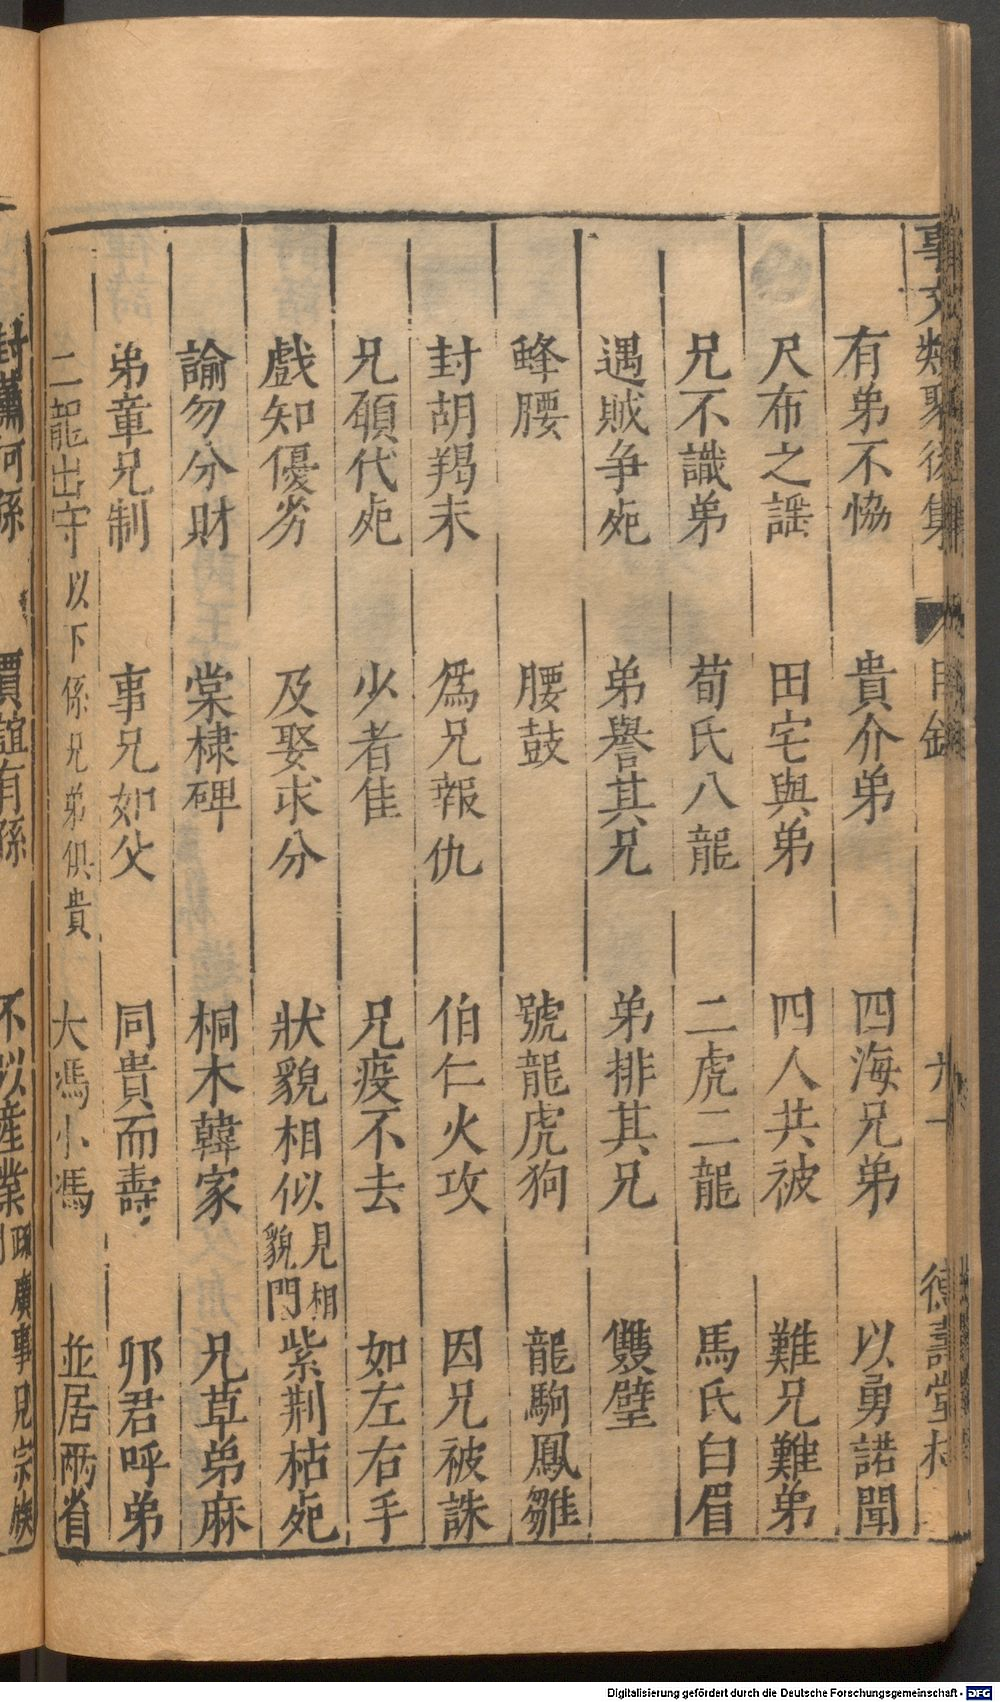 事文類聚後集 目録 六十一 德壽堂梓
有弟不恊 貴介弟 四海兄弟 以勇諾聞
尺布之謡 田宅與弟 四人共被 難兄難弟
兄不識弟 荀氏八龍 二虎二龍 馬氏白眉
遇賊争死 弟譽其兄 弟排其兄 雙璧
蜂腰 腰鼓 號龍虎狗 龍駒鳳雛
封胡羯末 爲兄報仇 伯仁火攻 因兄被誅
兄碩代死 少者隹 兄疫不去 如左右手
戲知優劣 及娶求分 狀貌相似 見相貌門 紫荆枯死
諭勿分財 棠棣碑 桐木韓家 兄草弟麻
弟章兄制 事兄如父 同貴而壽 邜君呼弟
二龍出守 以下係兄弟俱貴 大馮小馮 並居两省
封蕭何孫 賈誼有孫 不以産業 疎廣事見宗族
Digitalisierung gefördert durch die Deutsche Forschungsgemeinschaft - DFG